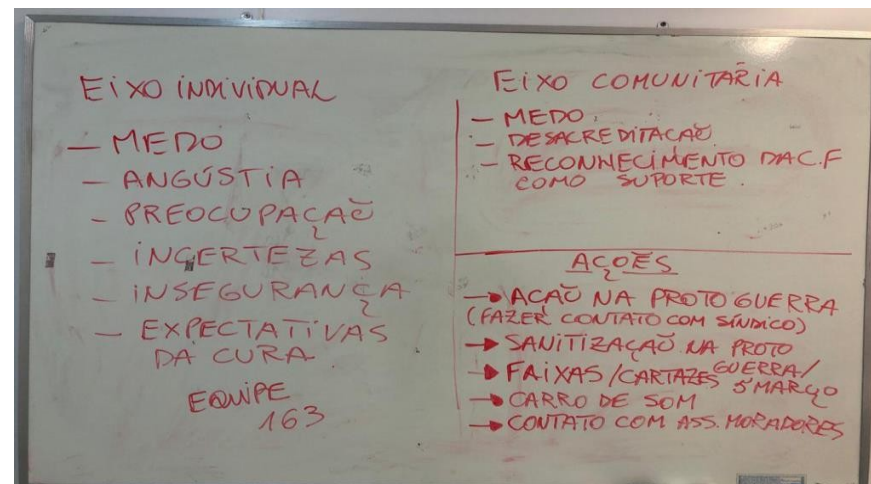 EIXO INDIVIDUAL
– MEDO
– ANGÚSTIA
– PREOCUPAÇAÕ
– INCERTEZAS
– INSEGURANÇA
– EXPECTATIVAS
DA CURA
EQUIPE
163
EIXO COMUNITÁRIA
– MEDO
– DESACREDITACAÕ
– RECONHECIMENTO DA C.F
COMO SUPORTE.
AÇOES
→ AÇAÕ NA PROTO GUERRA
(FAZER CONTATO COM SÍNDICO)
→ SANITIZAÇAÕ NA PROTO
GUERRA/
→ FAIXAS/CARTAZES 5 MARÇO
→ CARRO DE SOM
→ CONTATO COM ASS. MORADORES